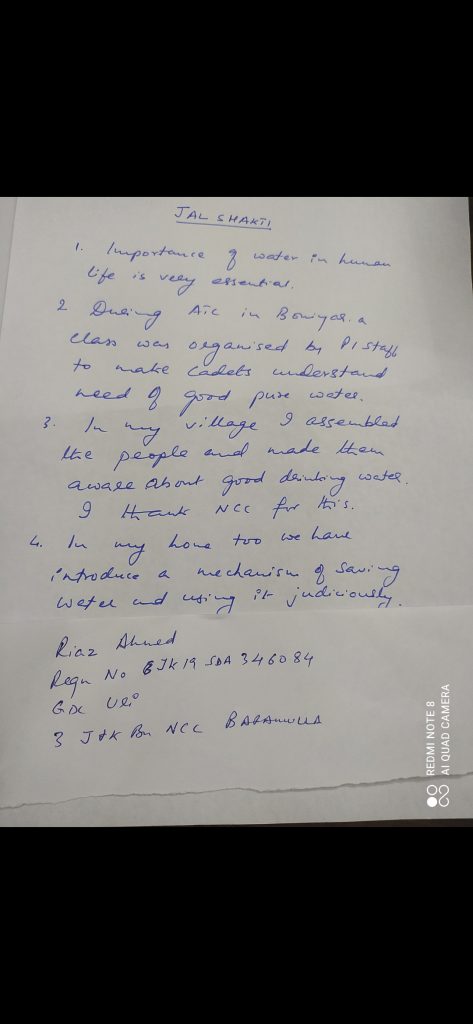 JAL SHAKTI
1. Importance of water in human
life is very essential.
2 During AIC in Boniyar. a
class was organised by PI staff
to make cadets understand
need of good pure water.
3. In my village I assembled
the people and made them
aware about good drinking water.
I thank NCC for this.
4. In my home too we have
introduce a mechanism of saving
water and using it judiciously.
Riaz Ahmed
Regn No JK19 SDA 346084
GDC Uri
3 J&K Bn NCC BARAMULLA
REDMI NOTE 8
AI QUAD CAMERA